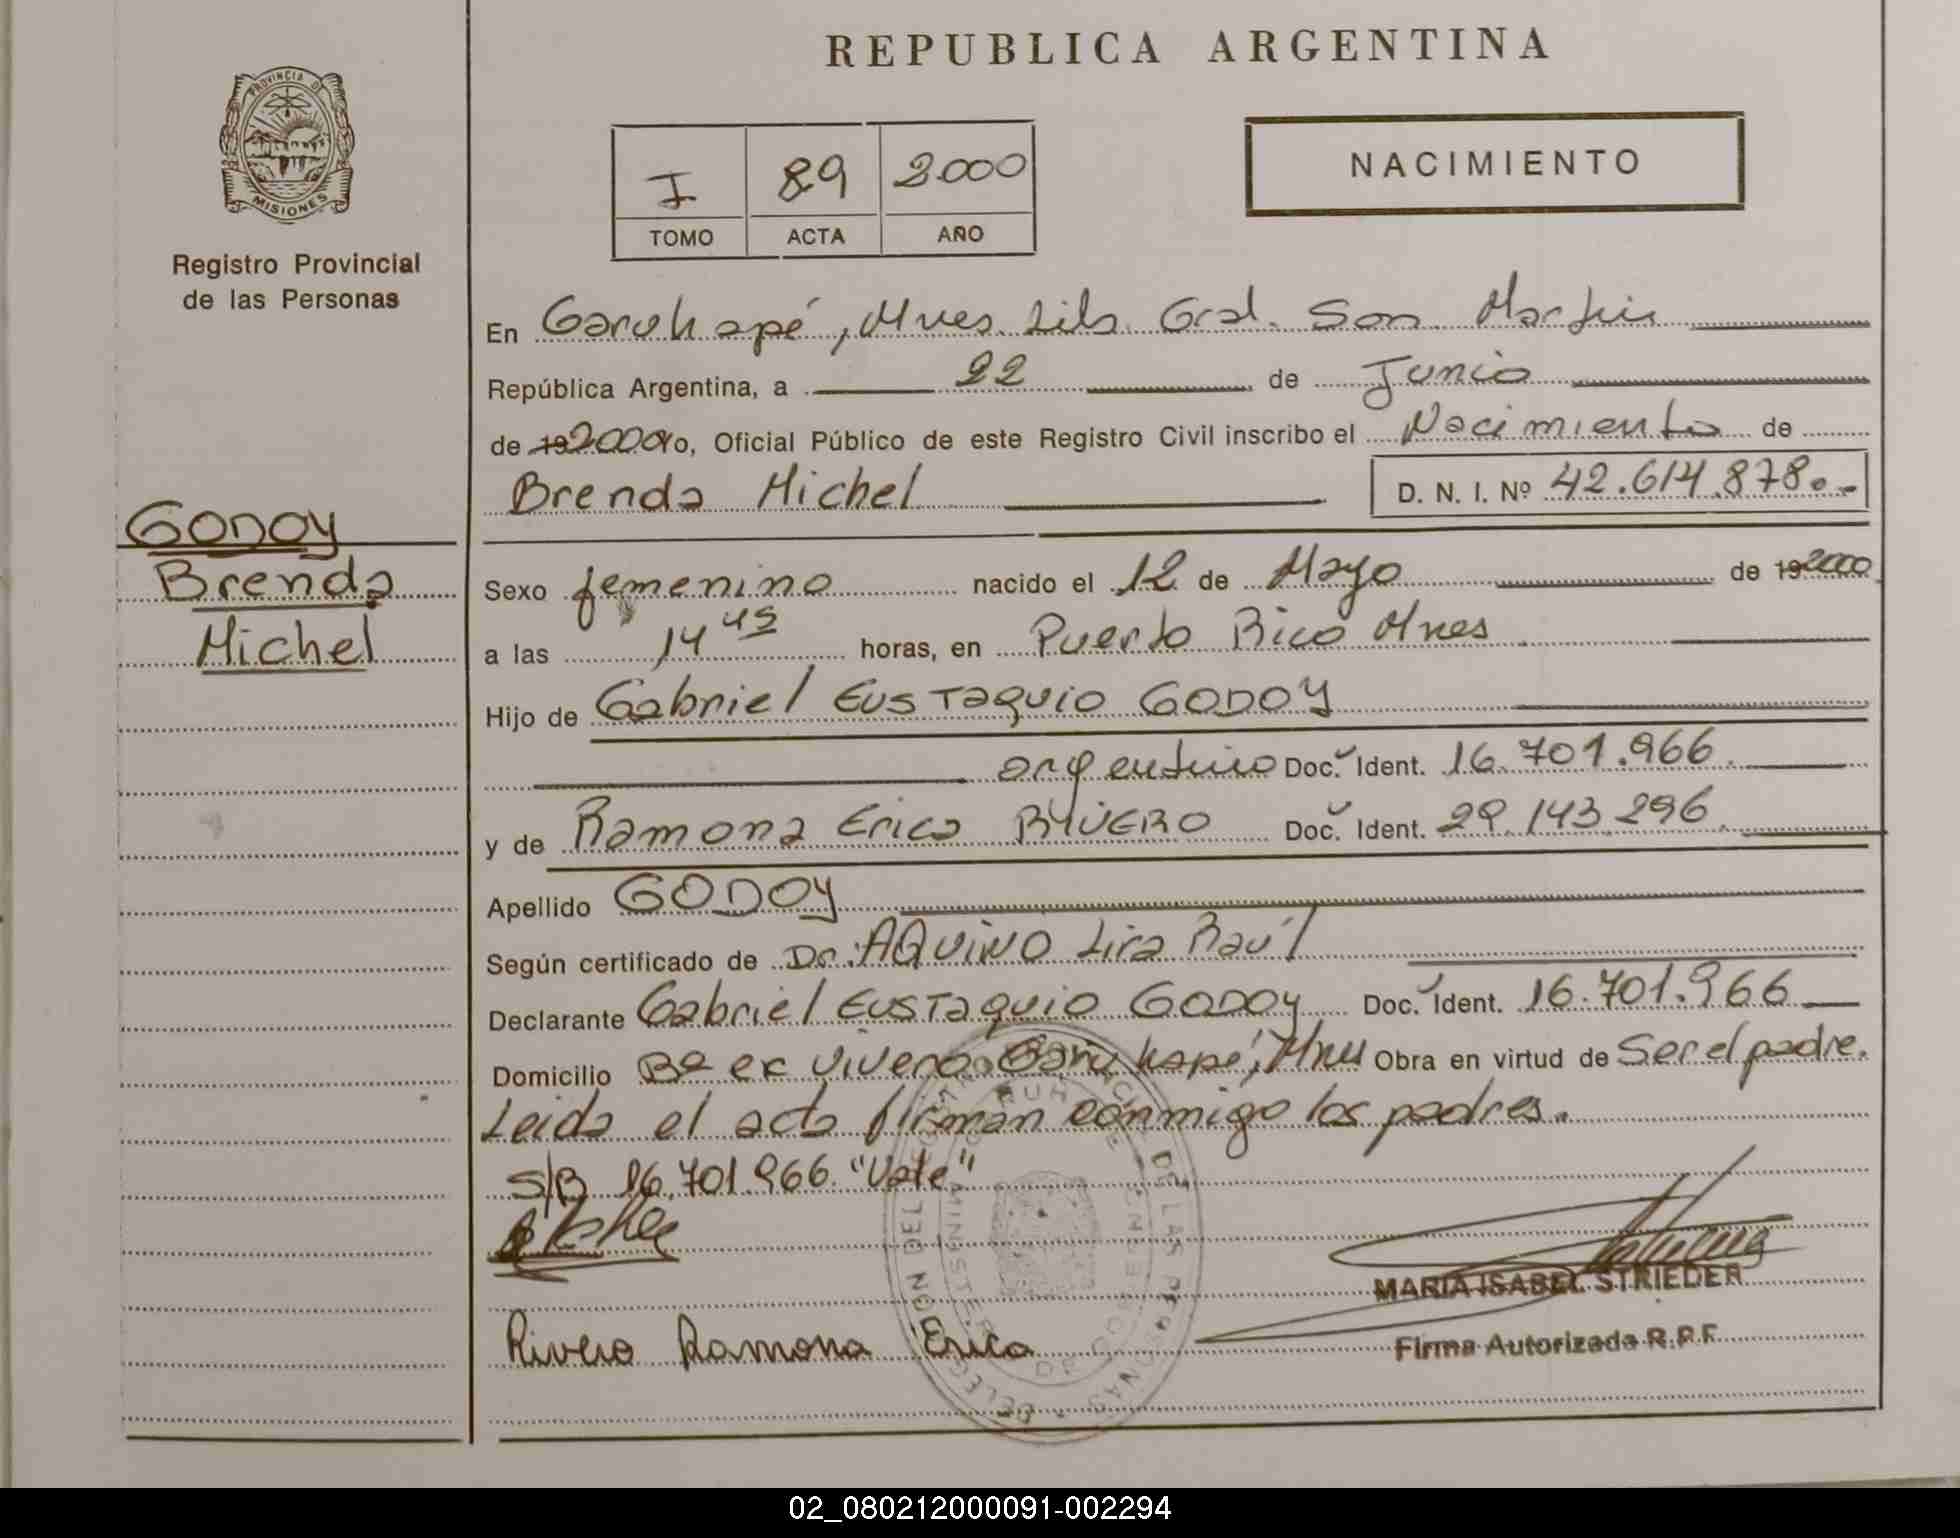 REPUBLICA ARGENTINA
PROVINCIA DE
MISIONES
Registro Provincial
de las Personas
I 89 2.000
TOMO ACTA AÑO
NACIMIENTO
En Garuhapé, Mnes. Lib. Gral. San Martin
República Argentina, a 22 de Junio
de 192000 yo, Oficial Público de este Registro Civil inscribo el Nacimiento de
Brenda Michel D. N. I. Nº 42.614.878.-
GODOY
Brenda
Michel
Sexo femenino nacido el 12 de Mayo de 192000
a las 14 45 horas, en Puerto Rico Mnes
Hijo de Gabriel Eustaquio GODOY
argentino Doc. Ident. 16.701.966
y de Ramona Erica RIVERO Doc. Ident. 29.143.296
Apellido GODOY
Según certificado de Dr. AQUINO Lira Raúl
Declarante Gabriel Eustaquio GODOY Doc. Ident. 16.701.966
Domicilio Bº ex vivero Garuhapé, Mnes Obra en virtud de Ser el padre.
Leida el acta firman conmigo los padres.
S/B 16.701.966 "Vale"
MARIA ISABEL STRIEDER
Firma Autorizada R.P.P.
Rivero Ramona Erica
02_080212000091-002294